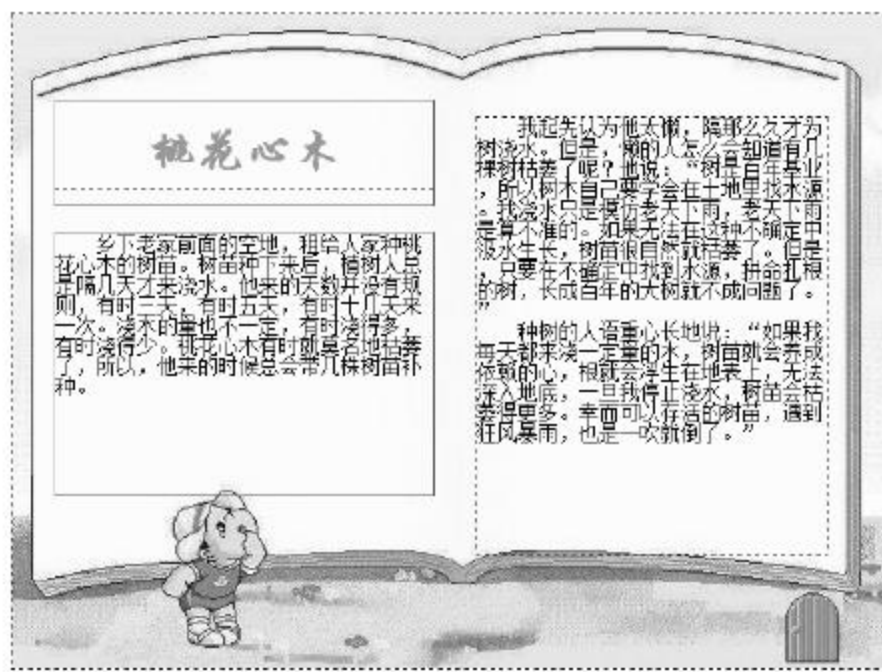 桃花心木
乡下老家前面的空地，租给人家种桃
花心木的树苗。树苗种下来后，植树人总
是隔几天才来浇水。他来的天数并没有规
则，有时三天，有时五天，有时十几天来
一次。浇水的量也不一定，有时浇得多，
有时浇得少。桃花心木有时就莫名地枯萎
了，所以，他来的时候总会带几株树苗补
种。
我起先认为他太懒，隔那么久才为
树浇水。但是，懒的人怎么会知道有几
棵树枯萎了呢？他说：“树是百年基业
，所以树木自己要学会在土地里找水源
。我浇水只是模仿老天下雨，老天下雨
是算不准的。如果无法在这种不确定中
汲水生长，树苗很自然就枯萎了。但是
，只要在不确定中找到水源，拼命扎根
的树，长成百年的大树就不成问题了。
”
种树的人语重心长地说：“如果我
每天都来浇一定量的水，树苗就会养成
依赖的心，根就会浮生在地表上，无法
深入地底，一旦我停止浇水，树苗会枯
萎得更多。幸而可以存活的树苗，遇到
狂风暴雨，也是一吹就倒了。”